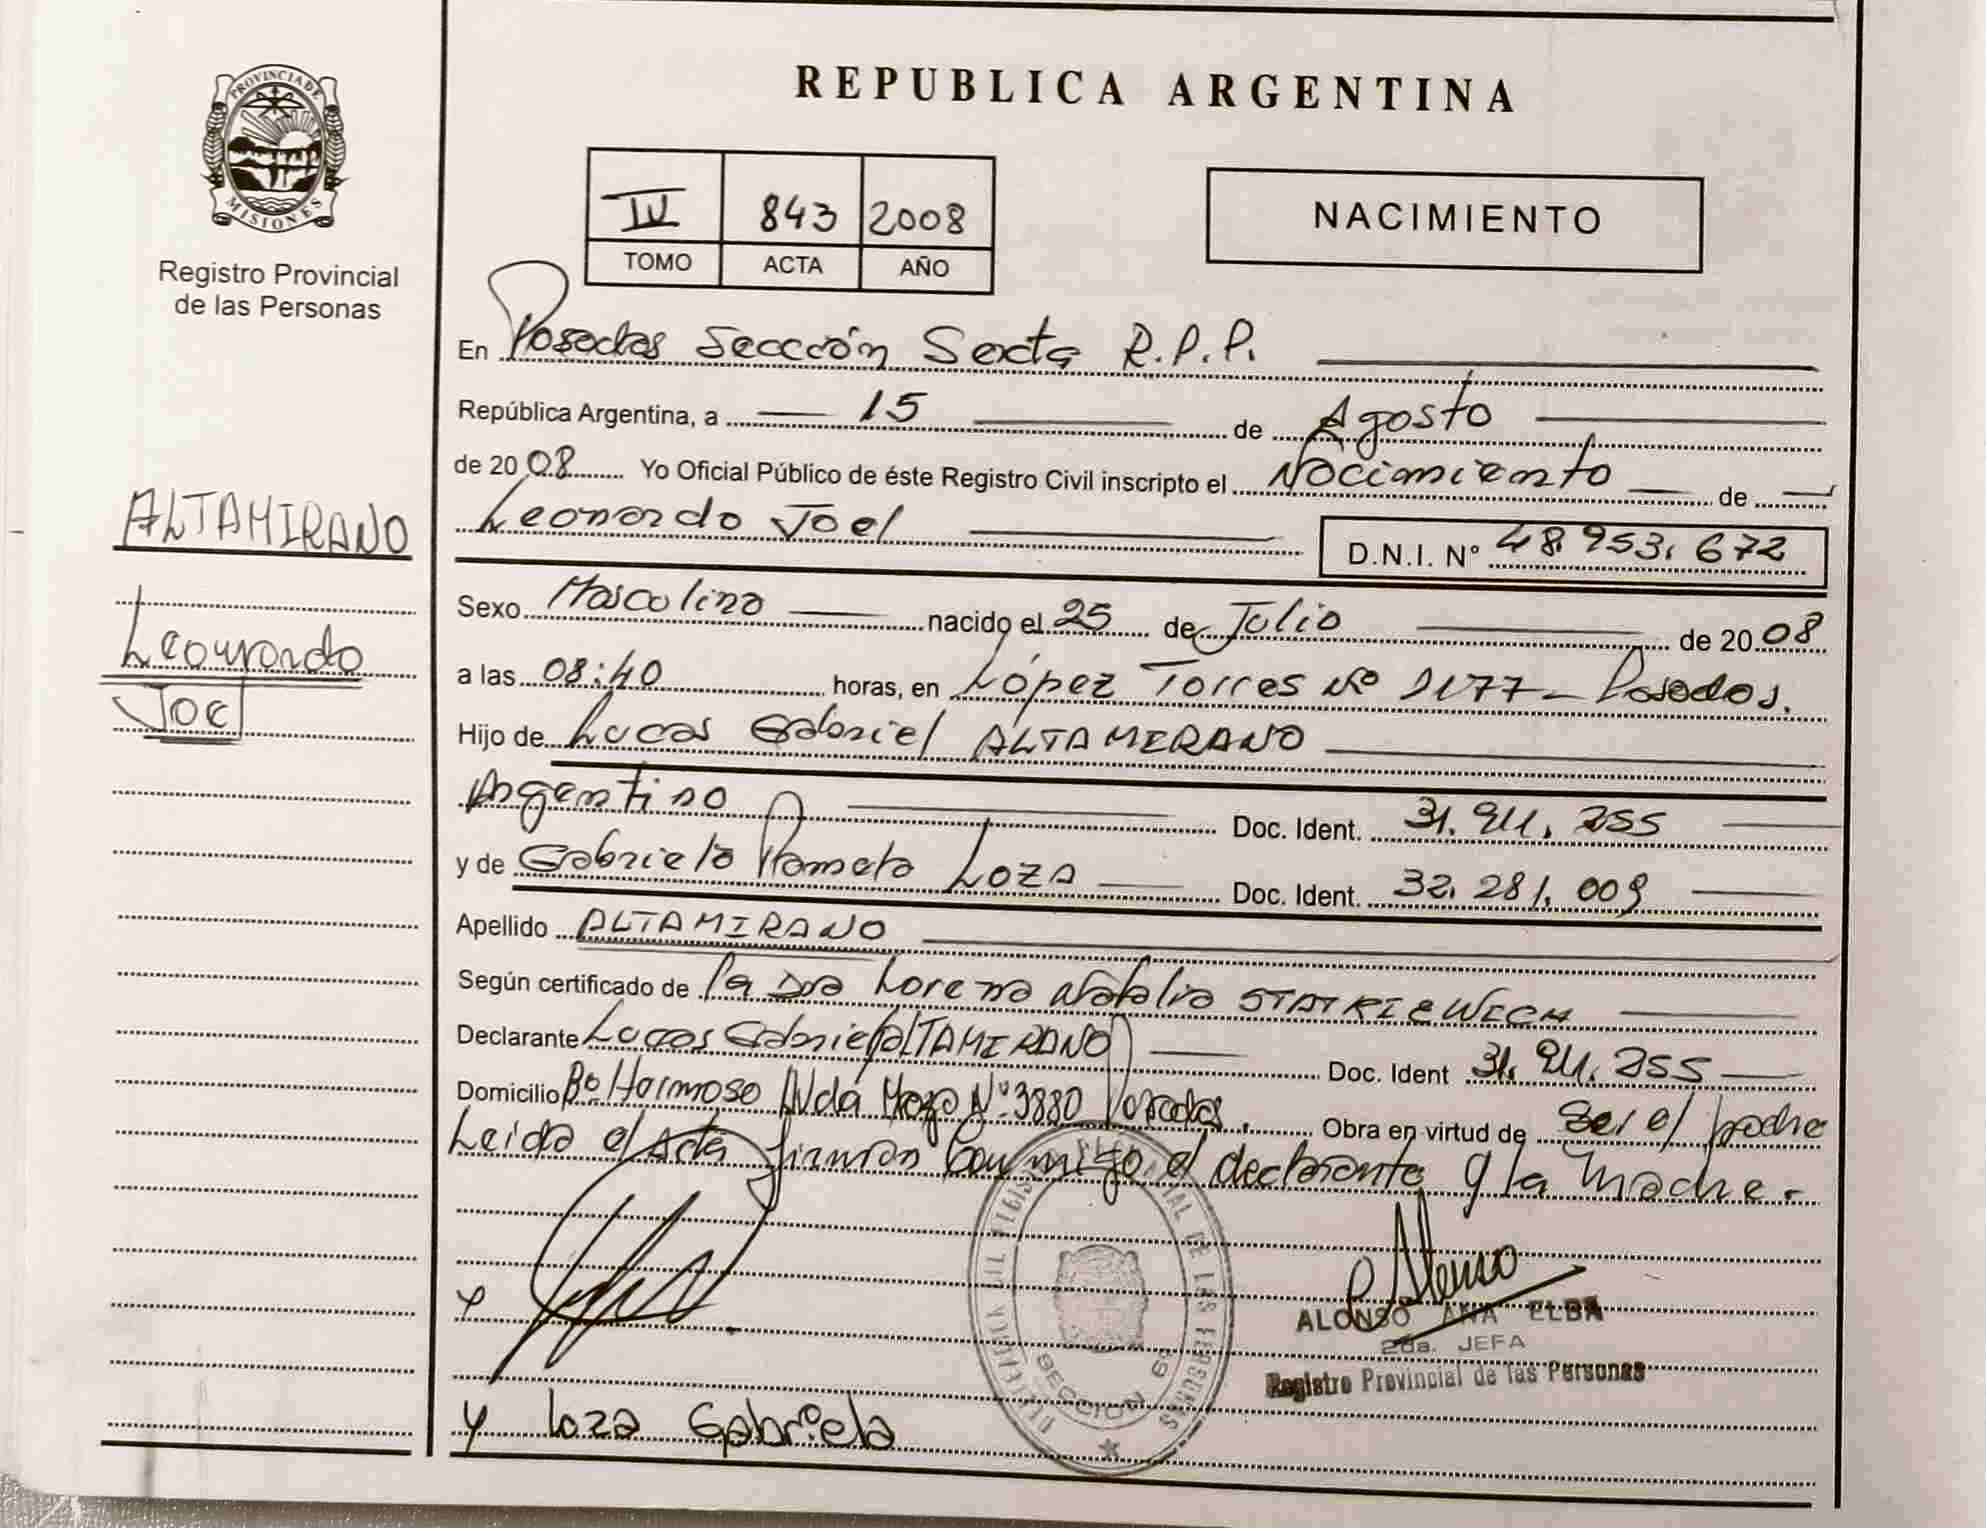 PROVINCIA DE
MISIONES
Registro Provincial
de las Personas
ALTAMIRANO
Leonardo
Joel
REPUBLICA ARGENTINA
IV 843 2008
TOMO ACTA AÑO
NACIMIENTO
En Posadas Seccción Sexta R.P.P.
República Argentina, a 15 de Agosto
de 20 08 Yo Oficial Público de éste Registro Civil inscripto el Nacimiento de
Leonardo Joel D.N.I. Nº 48.953.672
Sexo Masculino nacido el 25 de Julio de 20 08
a las 08:40 horas, en López Torres Nº 1177 - Posadas.
Hijo de Lucas Gabriel ALTAMIRANO
Argentino Doc. Ident. 31.911.255
y de Gabriela Pamela Loza Doc. Ident. 32.281.009
Apellido ALTAMIRANO
Según certificado de la Dra Lorena Natalia
Declarante Lucas Gabriel ALTAMIRANO Doc. Ident 31.911.255
Domicilio Bº Hermoso Avda Nº 3880 Posadas. Obra en virtud de ser el padre
Leida el Acta firman conmigo el declarante y la madre.-
ALONSO ANA ELBA
2da. JEFA
Registro Provincial de las Personas
SECCION 6ª
y Loza Gabriela